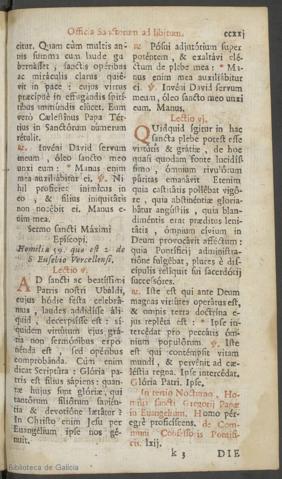 Officia Sanctorum ad libitum. ccxxj
citur. Quam cùm multis an-
nis summa cum laude gu
bernasset, sanctis opéribus
ac miráculis clarus quié-
vit in pace: cujus virtus
præcipuè in effugandis spiri-
tibus immundis elúcet. Eum
verò Cælestinus Papa Tér-
tius in Sanctórum númerum
rétulit.
℟. Invéni David servum
meum, óleo sancto meo
unxi eum: * Manus enim
mea auxiliábitur ei. ℣. Ni-
hil profíciet inimícus in
eo, & fílius iniquitátis
non nocébit ei. Manus e-
nim mea.
Sermo sancti Máximi
Epíscopi.
Homilia 59. quæ est 2. de
S. Eusebio Vercellensi.
Lectio v.
AD sancti ac beatíssimi
Patris nostri Ubáldi,
cujus hódie festa celebrá-
mus, laudes addidísse áli-
quid, decerpsísse est: si-
quidem virtútum ejus grá-
tia non sermónibus expo-
nénda est, sed opéribus
comprobánda. Cùm enim
dicat Scriptúra: Glória pa-
tris est fílius sápiens: quan-
tæ hujus sunt glóriæ, qui
tantórum filiórum sapién-
tia & devotióne lætátur?
In Christo enim Jesu per
Euangélium ipse nos gé-
nuit.
℟. Pósui adjutórium super
poténtem, & exaltávi elé-
ctum de plebe mea: * Ma-
nus enim mea auxiliábitur
ei. ℣. Invéni David servum
meum, óleo sancto meo unxi
eum. Manus.
Lectio vj.
QUidquid ígitur in hac
sancta plebe potest esse
virtútis & grátiæ, de hoc
quasi quodam fonte lucidís-
simo, ómnium rivulórum
púritas emanávit. Etenim
quia castitátis pollébat vigó-
re, quia abstinéntiæ gloria-
bátur angústiis, quia blan-
diméntis erat prǽditus leni-
tátis, ómnium cívium in
Deum provocávit afféctum:
quia Pontifícii administra-
tióne fulgébat, plures è dis-
cípulis relíquit sui sacerdótij
successóres.
℟. Iste est qui ante Deum
magnas virtútes operátus est,
& omnis terra doctrína e-
jus repléta est: * Ipse in-
tercédat pro peccátis óm-
nium populórum. ℣. Iste
est qui contémpsit vitam
mundi, & pervénit ad cæ-
léstia regna. Ipse intercédat.
Glória Patri. Ipse.
In tertio Nocturno, Ho-
milia sancti Gregorij Papæ
in Euangelium. Homo pére-
grè proficíscens, de Com-
muni Confessoris Pontifi-
cis. lxij.
k 3 DIE
Biblioteca de Galicia